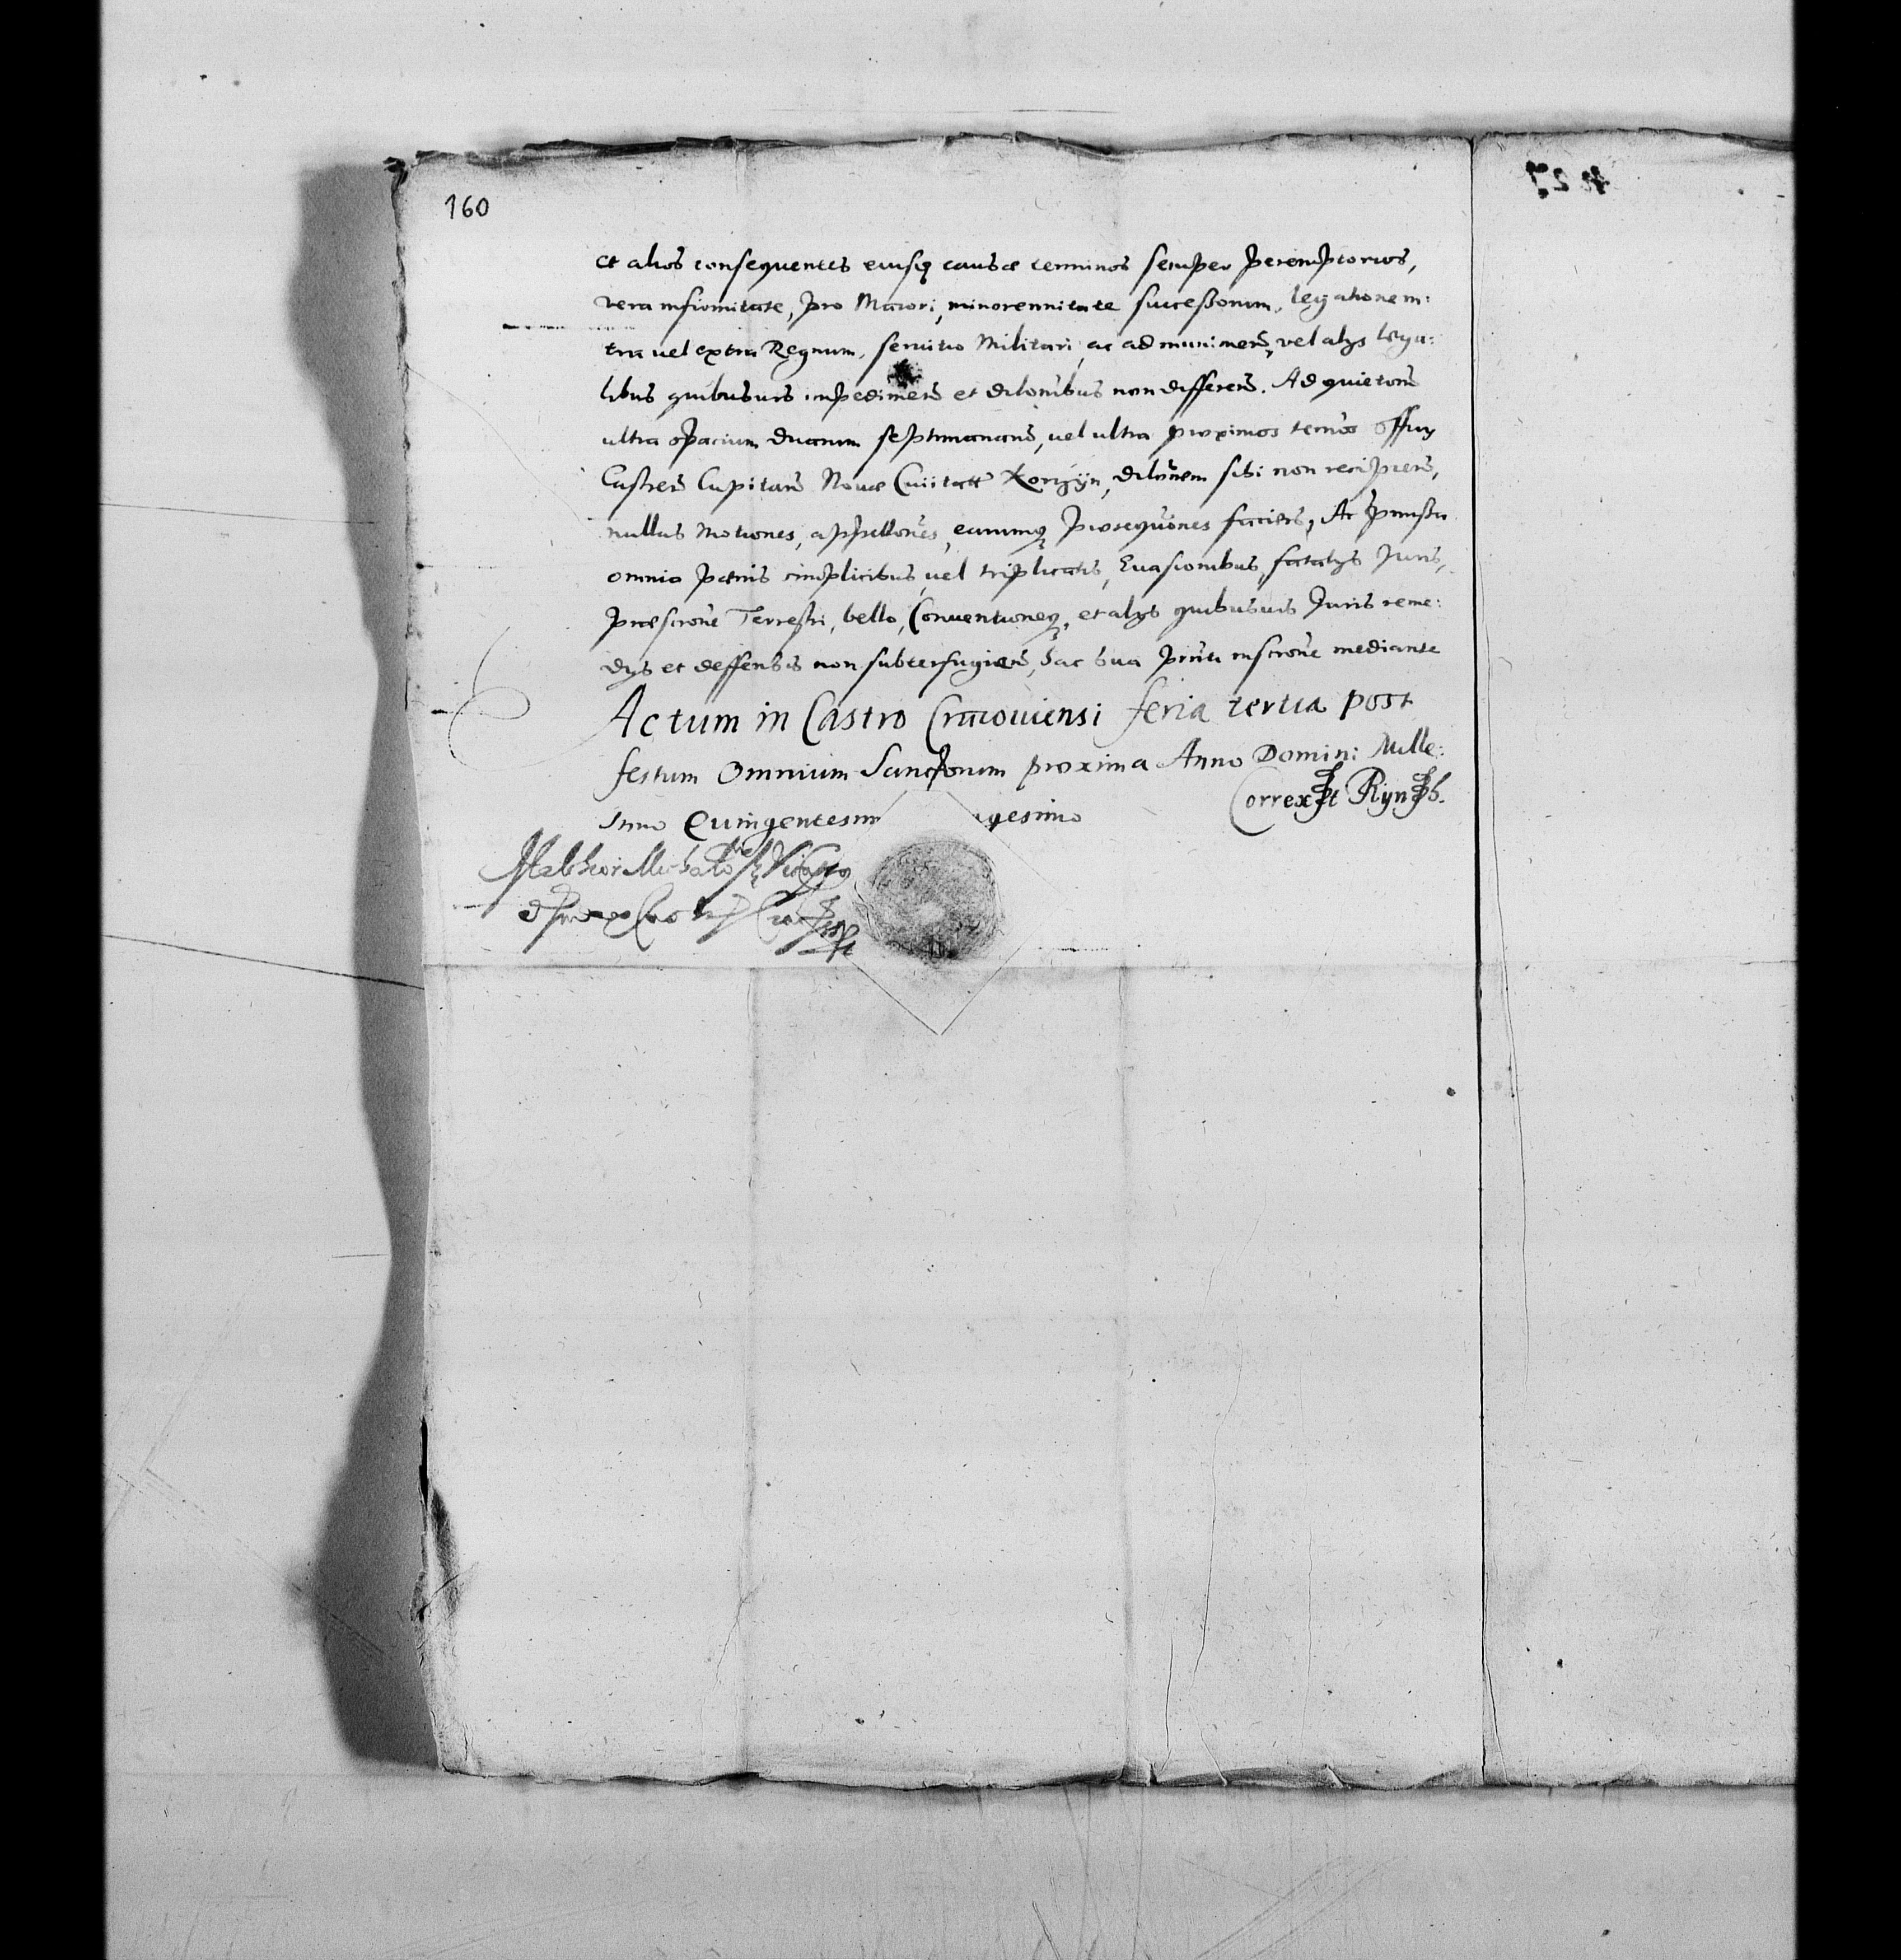 160
et alios consequentes eiusq causæ terminos semper peremptorios,
vera infirmitate, pro Maiori, minorennitate successorum, legatione in:
tra vel extra Regnum, seruitio Militari, ac ad munimen, vel alys legu:
libus quibusuis impedimen et dilonibus non differen. Ad quietons
ultra spacium duarum septimanarū, vel ultra proximos termos Offity
Castren Capitan Nouæ Ciuitatt Korczyn, dilonem sibi non recipien,
nullas Motiones, appellones, earumq prosequones facien, Ac pmissa
omnia patnis simplicibus, vel triplicatis, Euasionibus, fatalys Juris,
præscrione Terrestri, bello, Conuentioneq, et alys quibusuis Juris reme:
dys et deffensis non subterfugien, hac sua pnti inscrione mediante
Actum in Castro Cracouiensi feria tertia post
festum Omnium Sanctorum proxima Anno Domini Mille:
simo Quingentesim gesimo
Correxit